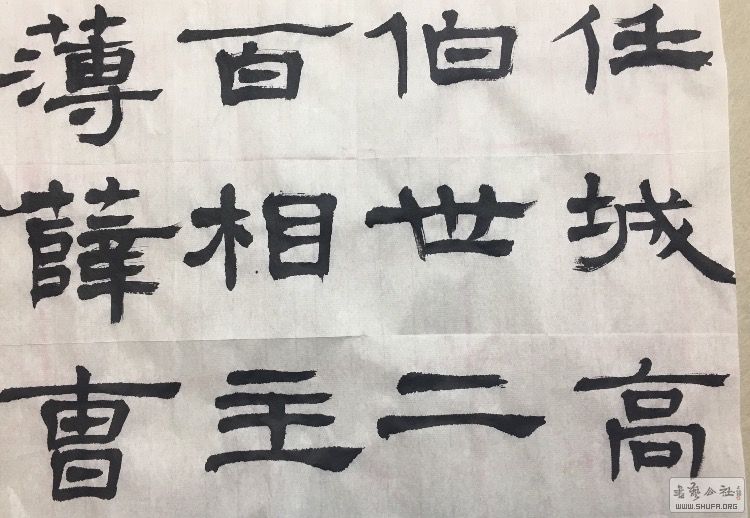 任城高
伯世二
百相主
薄薛曺
書藝公社
WWW.SHUFA.ORG